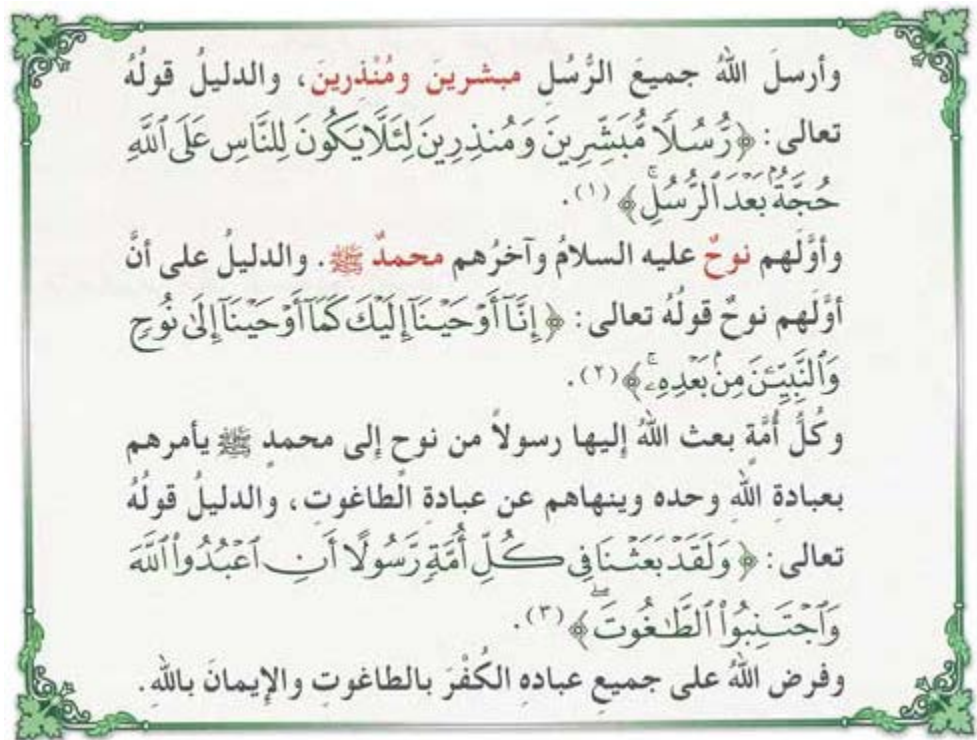 وأرسلَ اللهُ جميعَ الرُّسُلِ مبشرينَ ومُنْذِرينَ، والدليلُ قولُهُ
تعالى: ﴿رُّسُلًا مُّبَشِّرِينَ وَمُنذِرِينَ لِئَلَّا يَكُونَ لِلنَّاسِ عَلَى ٱللَّهِ
حُجَّةُۢ بَعْدَ ٱلرُّسُلِۚ﴾ (١).
وأوَّلَهم نوحٌ عليه السلامُ وآخرُهم محمدٌ ﷺ. والدليلُ على أنَّ
أوَّلَهم نوحٌ قولُهُ تعالى: ﴿إِنَّآ أَوْحَيْنَآ إِلَيْكَ كَمَآ أَوْحَيْنَآ إِلَىٰ نُوحٍ
وَٱلنَّبِيِّـۧنَ مِنۢ بَعْدِهِۦۚ﴾ (٢).
وكُلُّ أُمَّةٍ بعث اللهُ إليها رسولاً من نوح إلى محمدٍ ﷺ يأمرهم
بعبادةِ اللهِ وحده وينهاهم عن عبادةِ الطاغوتِ، والدليلُ قولُهُ
تعالى: ﴿وَلَقَدْ بَعَثْنَا فِي كُلِّ أُمَّةٍ رَّسُولًا أَنِ ٱعْبُدُوا۟ ٱللَّهَ
وَٱجْتَنِبُوا۟ ٱلطَّٰغُوتَۖ﴾ (٣).
وفرض اللهُ على جميعِ عبادهِ الكُفْرَ بالطاغوتِ والإيمانَ باللهِ.